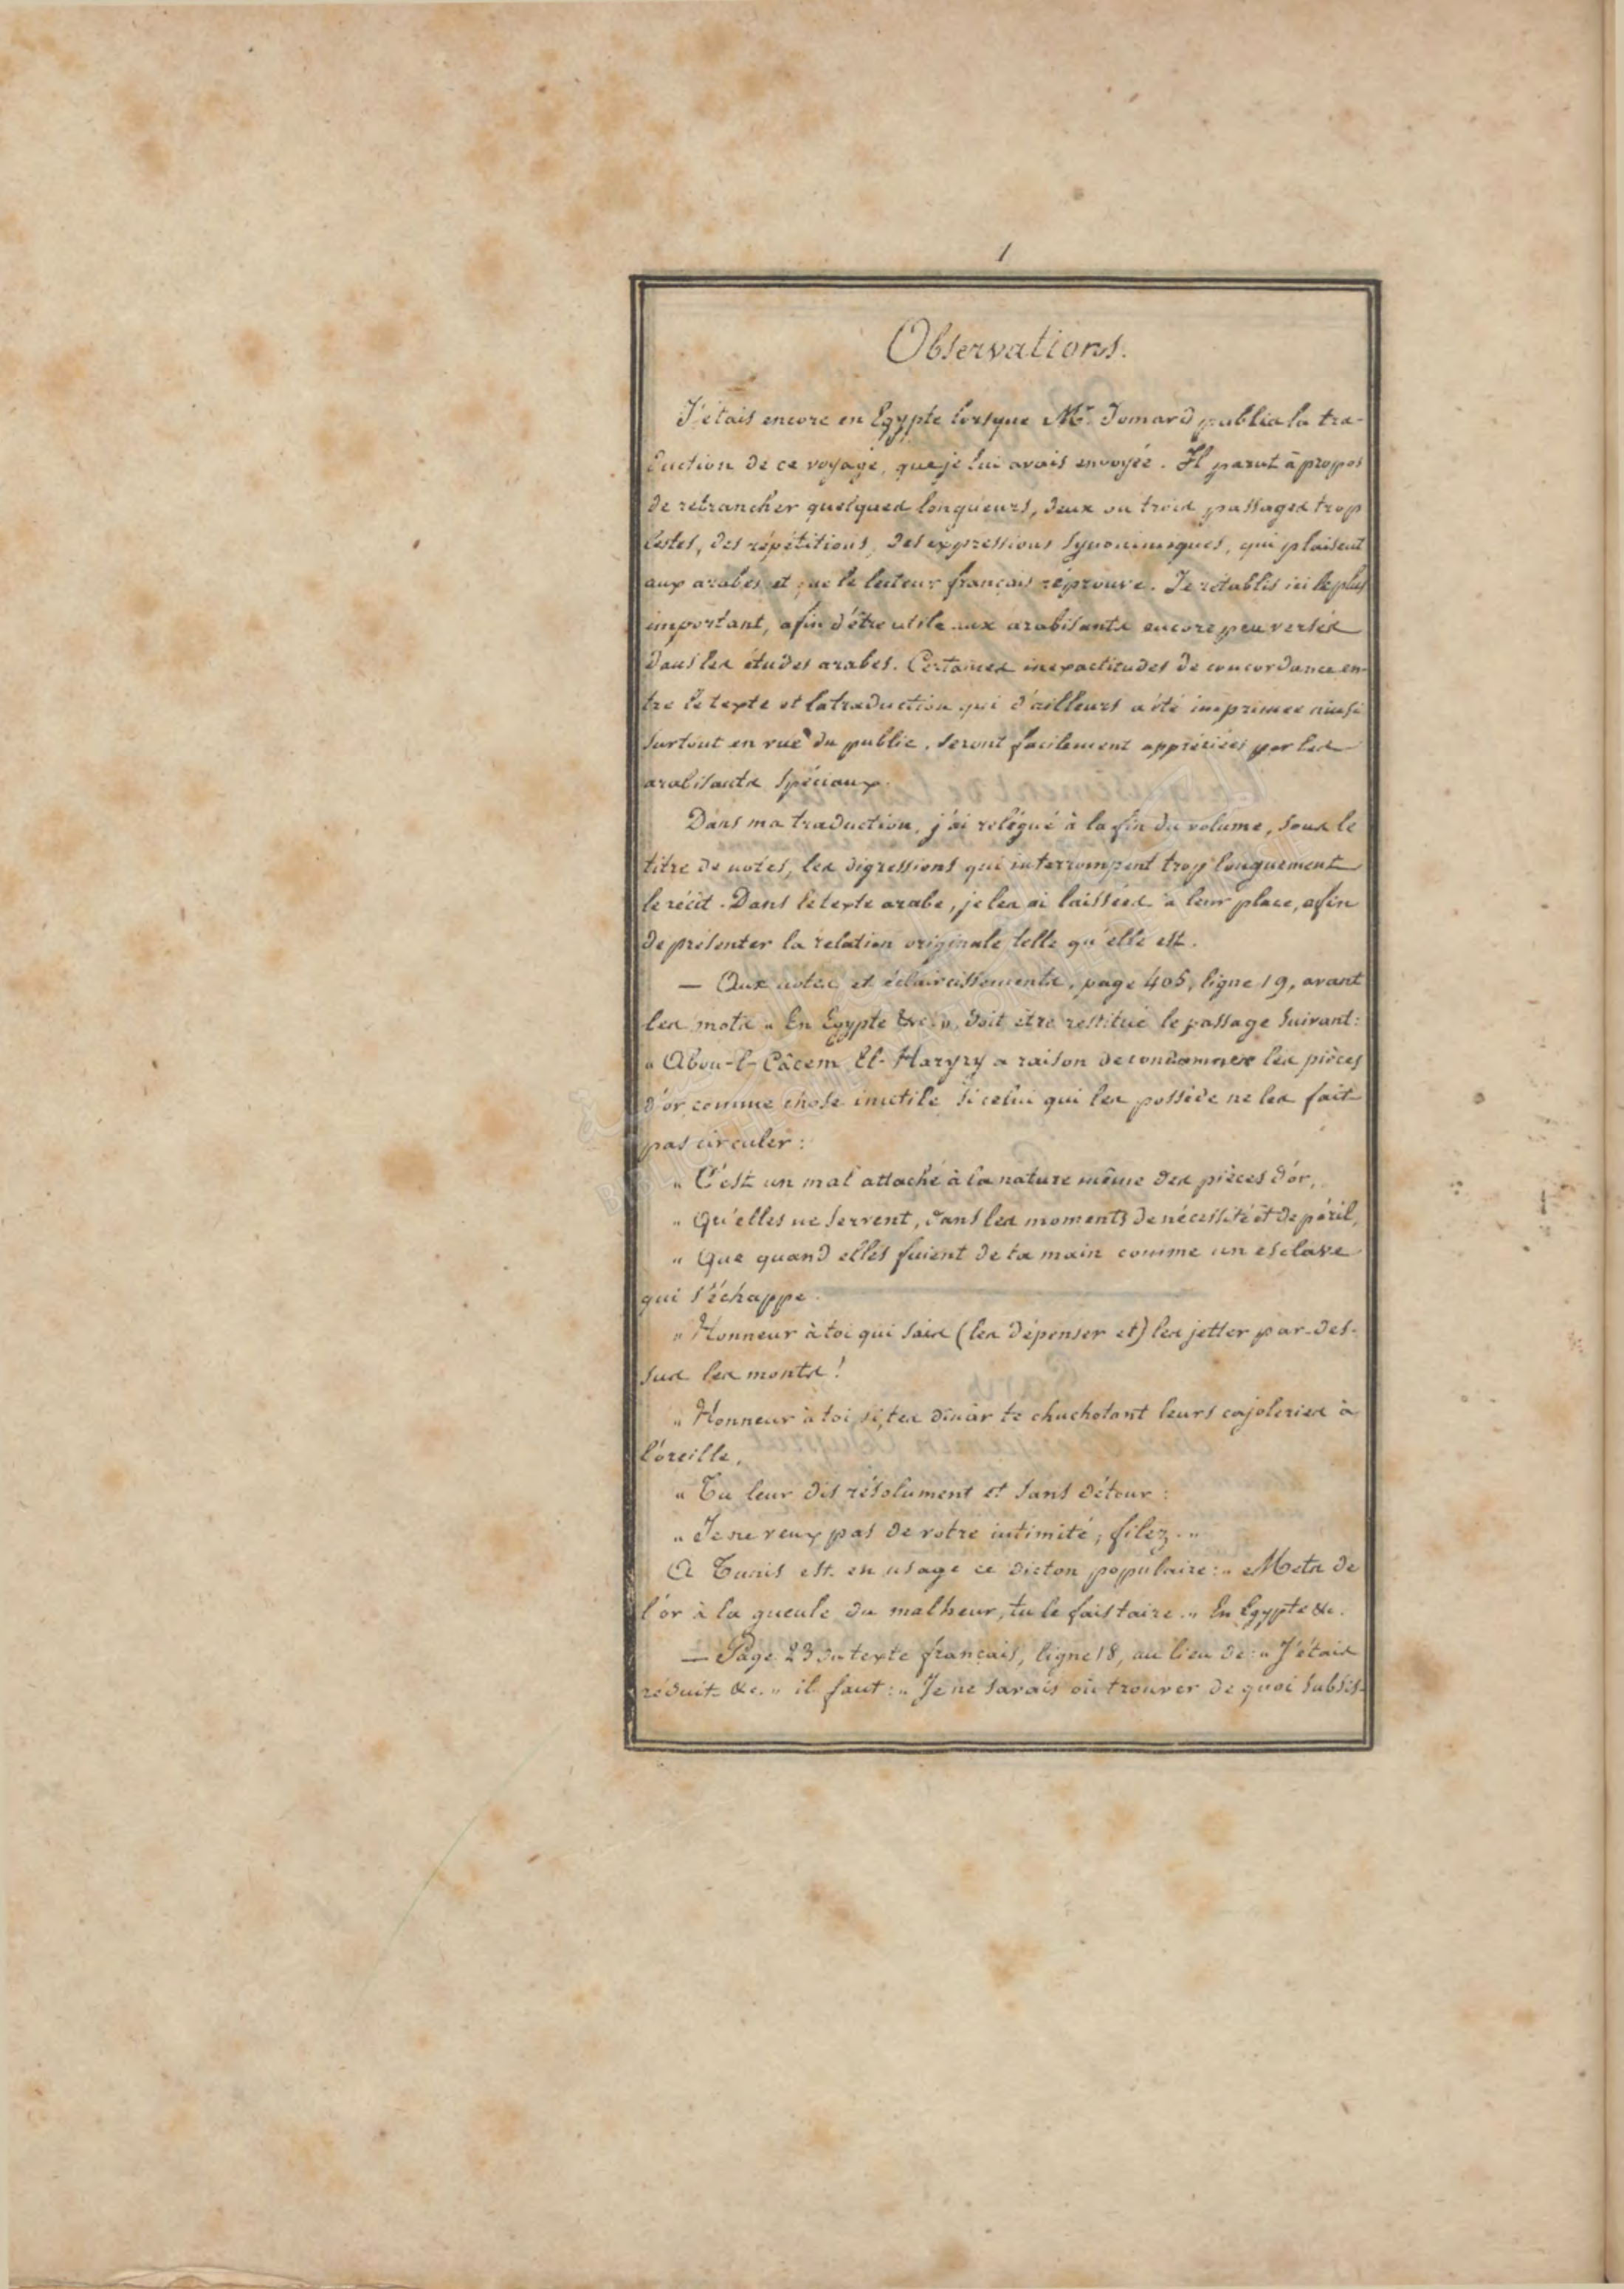 1
Observations.
J'étais encore en Egypte lorsque Mr. Jomard publia la tra-
duction de ce voyage, que je lui avais envoyée. Il parut à propos
de retrancher quelques longueurs, deux ou trois passages trop
lestes, des répétitions, des expressions synonimiques, qui plaisent
aux arabes et que le lecteur français réprouve. Je rétablis ici le plus
important, afin d'être utile aux arabisants encore peu versés
dans les études arabes. Certaines inexactitudes de concordance en-
tre le texte et la traduction qui d'ailleurs a été imprimée ainsi
surtout en vue du public, seront facilement appréciées par les
arabisants spéciaux.
Dans ma traduction, j'ai relégué à la fin du volume, sous le
titre de notes, les digressions qui interrompent trop longuement
le récit. Dans le texte arabe, je les ai laissées à leur place, afin
de présenter la relation originale telle qu'elle est.
— Aux notes et éclaircissements, page 405, ligne 19, avant
les mots „ En Egypte &c. „, doit être restitué le passage suivant:
„ Abou-l-Câcem El-Haryry a raison de condamner les pièces
d'or comme chose inutile si celui qui les possède ne les fait
pas circuler :
„ C'est un mal attaché à la nature même des pièces d'or,
„ Qu'elles ne servent, dans les moments de nécessité et de péril,
„ Que quand elles fuient de ta main comme un esclave
qui s'échappe.
„ Honneur à toi qui sais (les dépenser et) les jetter par-des-
sus les monts !
„ Honneur à toi si, tes dinâr te chuchotant leurs cajoleries à
l'oreille,
„ Tu leur dis résolument et sans détour :
„ Je ne veux pas de votre intimité ; filez. „
A Tunis est en usage ce dicton populaire : „ Mets de
l'or à la gueule du malheur, tu le fais taire. „ En Egypte &c.
— Page 23 du texte français, ligne 18, au lieu de : „ J'étais
réduit &c. „ il faut : „ Je ne savais où trouver de quoi subsis-